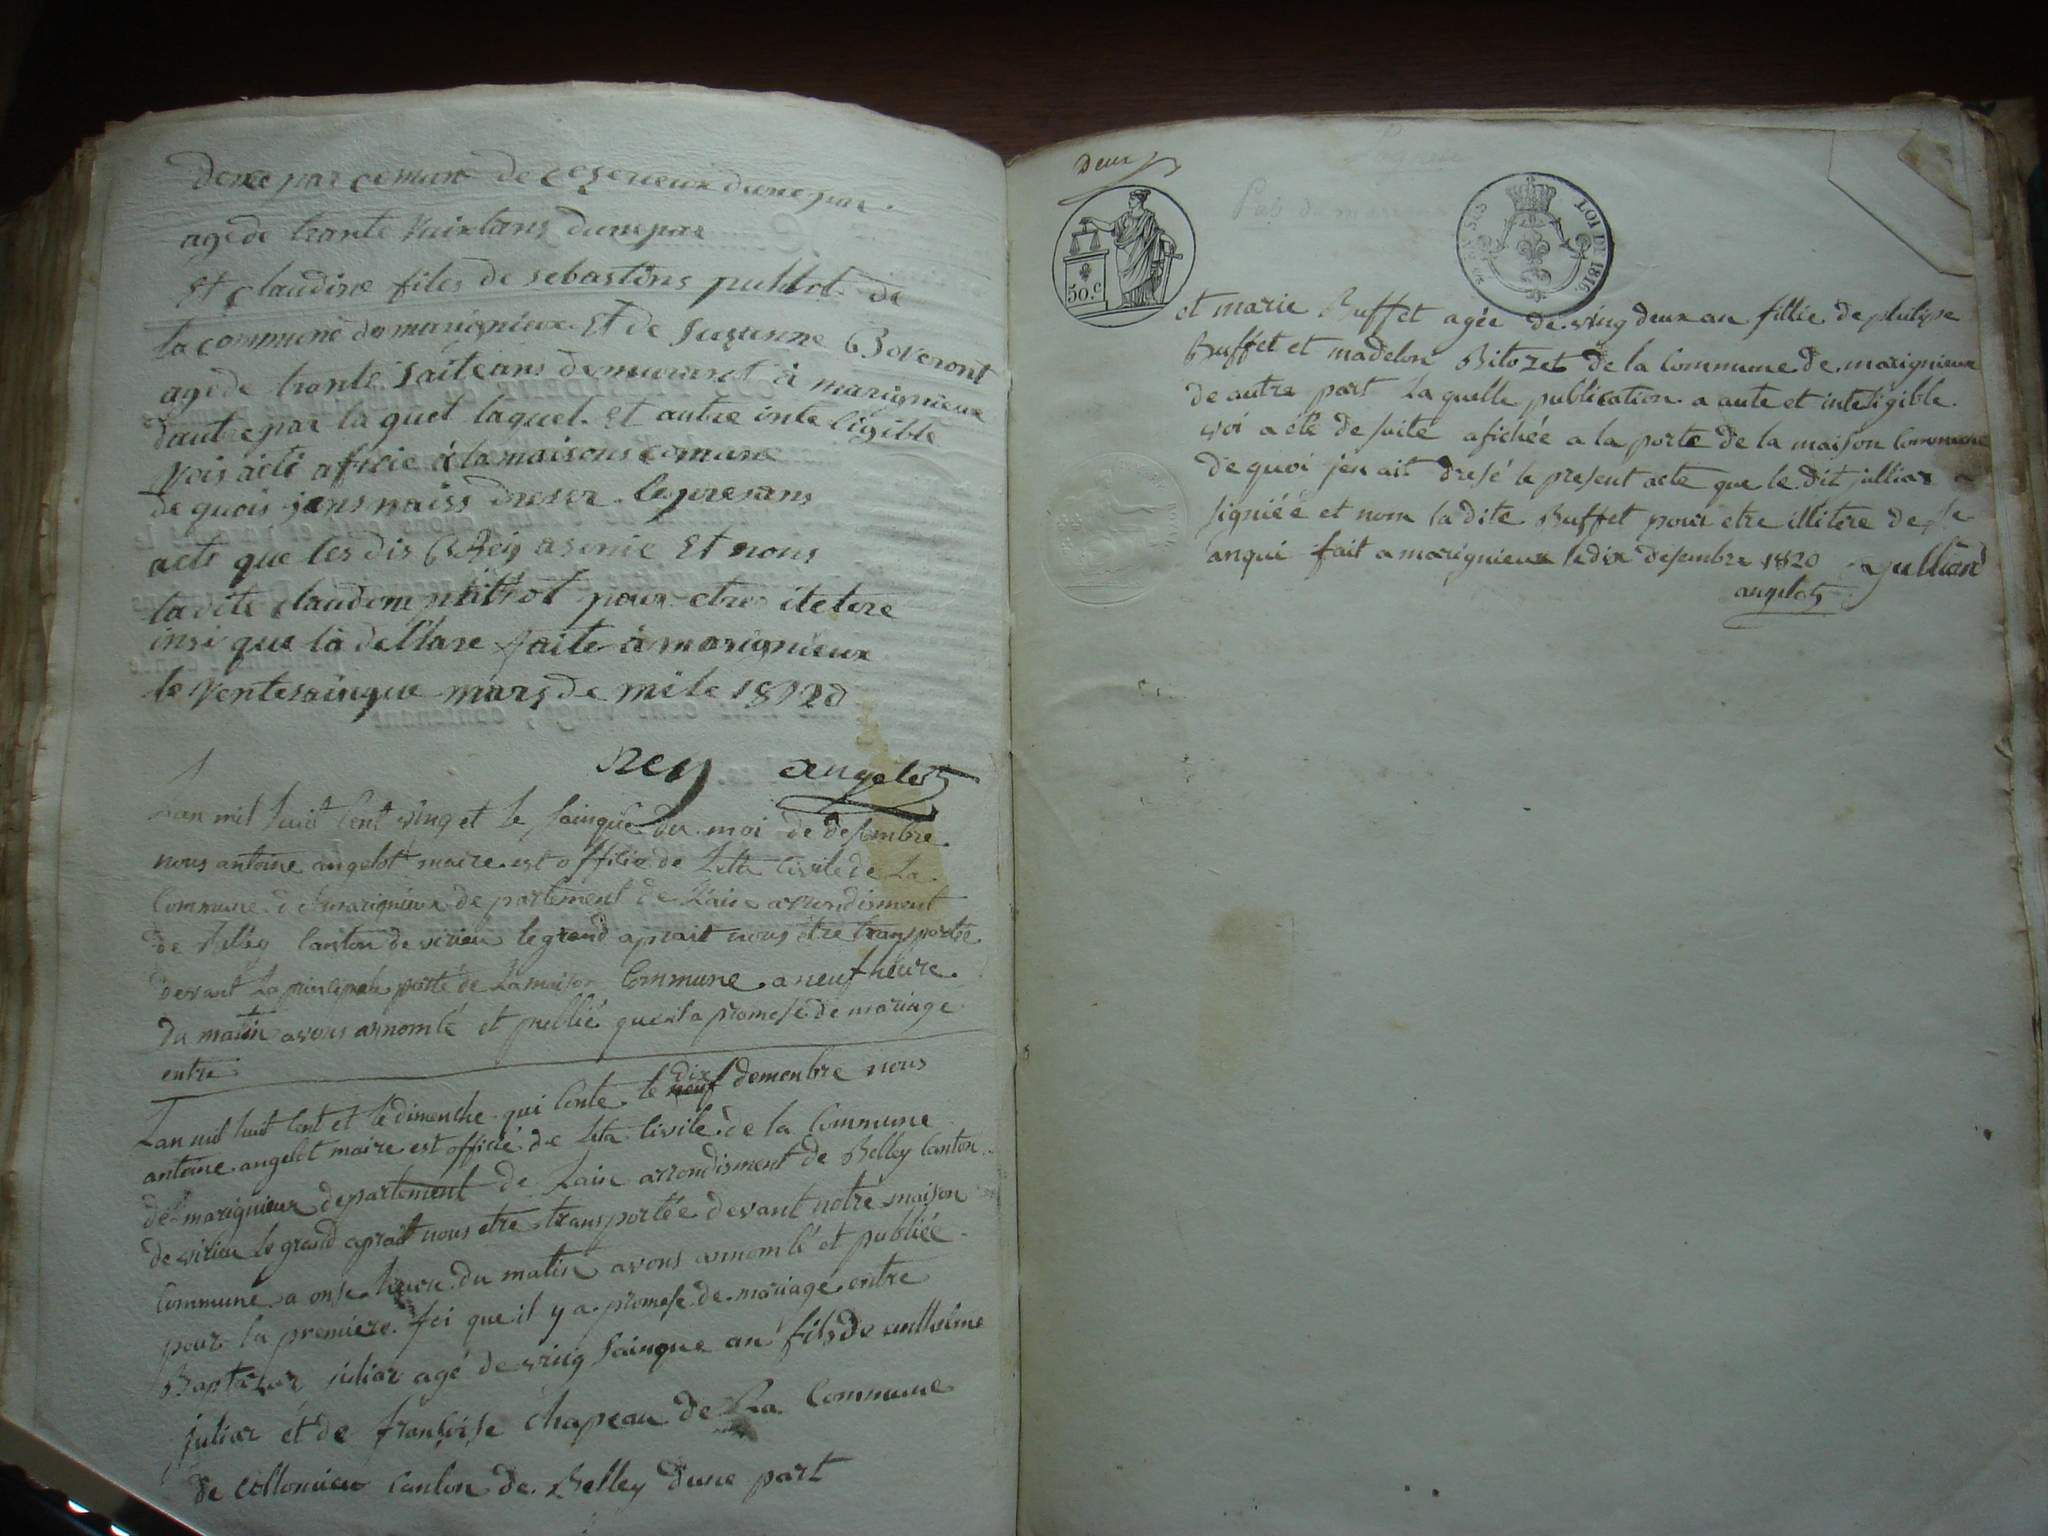 agede trante huixtans dunepar
Et claudine files de sebastins puthod de
la commune de marignieux Et de Susenne Boveront
agede trante saiteans demurant à marignieux
dautre par la quel laquel et autre inteligible
vois aété aficie à la maisons comune
de quois jens naiss dreser le presans
acte que les dis Rey asinie Et nons
la dite claudom puthod pour etre itetere
insi que la dellare faite à marignieux
le ventesainque mars de mile 1820
Rey angelot
Lan mil huit Cent ving et le sainque du moi de desembre
nous antoine angelot maire est officie de Leta Civile de La
Commune de marignieux departement de Lain arrondisment
de Belley Canton de virieu legrand aprait nous étre transportée
devant La principale porte de Lamaison Commune a neuf heure
du matin avons annomté et publié quer la promese de mariage
entre
Lan mil huit Cent et le dimenche qui Conte le neuf dix demenbre nous
antoine angelot maire est officié de Leta Civile de la Commune
de marignieux departement de Lain arrondisment de Belley Canton
de virieu le grand aprait nous etre transportée devant notre maison
Commune a onse heure du matin avons annomté et publiée
pour la premiere foi que il y a promese de mariage entre
Baptazar juliar agé de ving sainque an fils de anthelme
juliar et de françoise Chapeau de La Commune
de Collomieu Canton de Belley dune part
Deux
50.c
LOI DE 1816.
et marie Buffet agée de ving deux an fillie de philipe
Buffet et madelon Bitozet de la Commune de marignieux
de autre part La quelle publication a aute et inteligible
voi a été de suite afichée a la porte de la maison Commune
de quoi jen ait dresé le present acte que le dit julliar a
signiéé et nom la dite Buffet pour etre illitere de se
anqui fait a marignieux le dix desembre 1820 Jullian
angelot